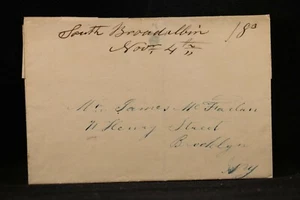 South Broadalbin
Nov. 4th 18
Mr. James McFarlan
Henry Street
Brooklyn
N.Y.